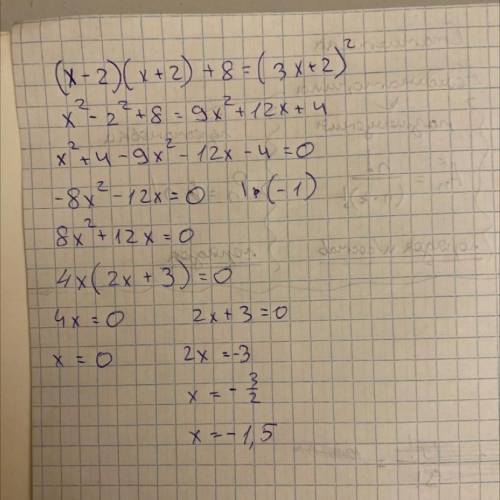 (x-2)(x+2)+8=(3x+2)²
x²-2²+8=9x²+12x+4
x²+4-9x²-12x-4=0
-8x²-12x=0 |·(-1)
8x²+12x=0
4x(2x+3)=0
4x=0 2x+3=0
x=0 2x=-3
x=-3/2
x=-1,5